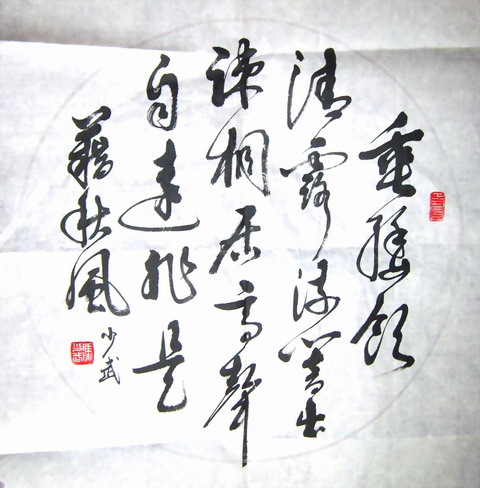 垂緌飲
清露流響出
疎桐居高聲
自遠非是
藉秋風
少武